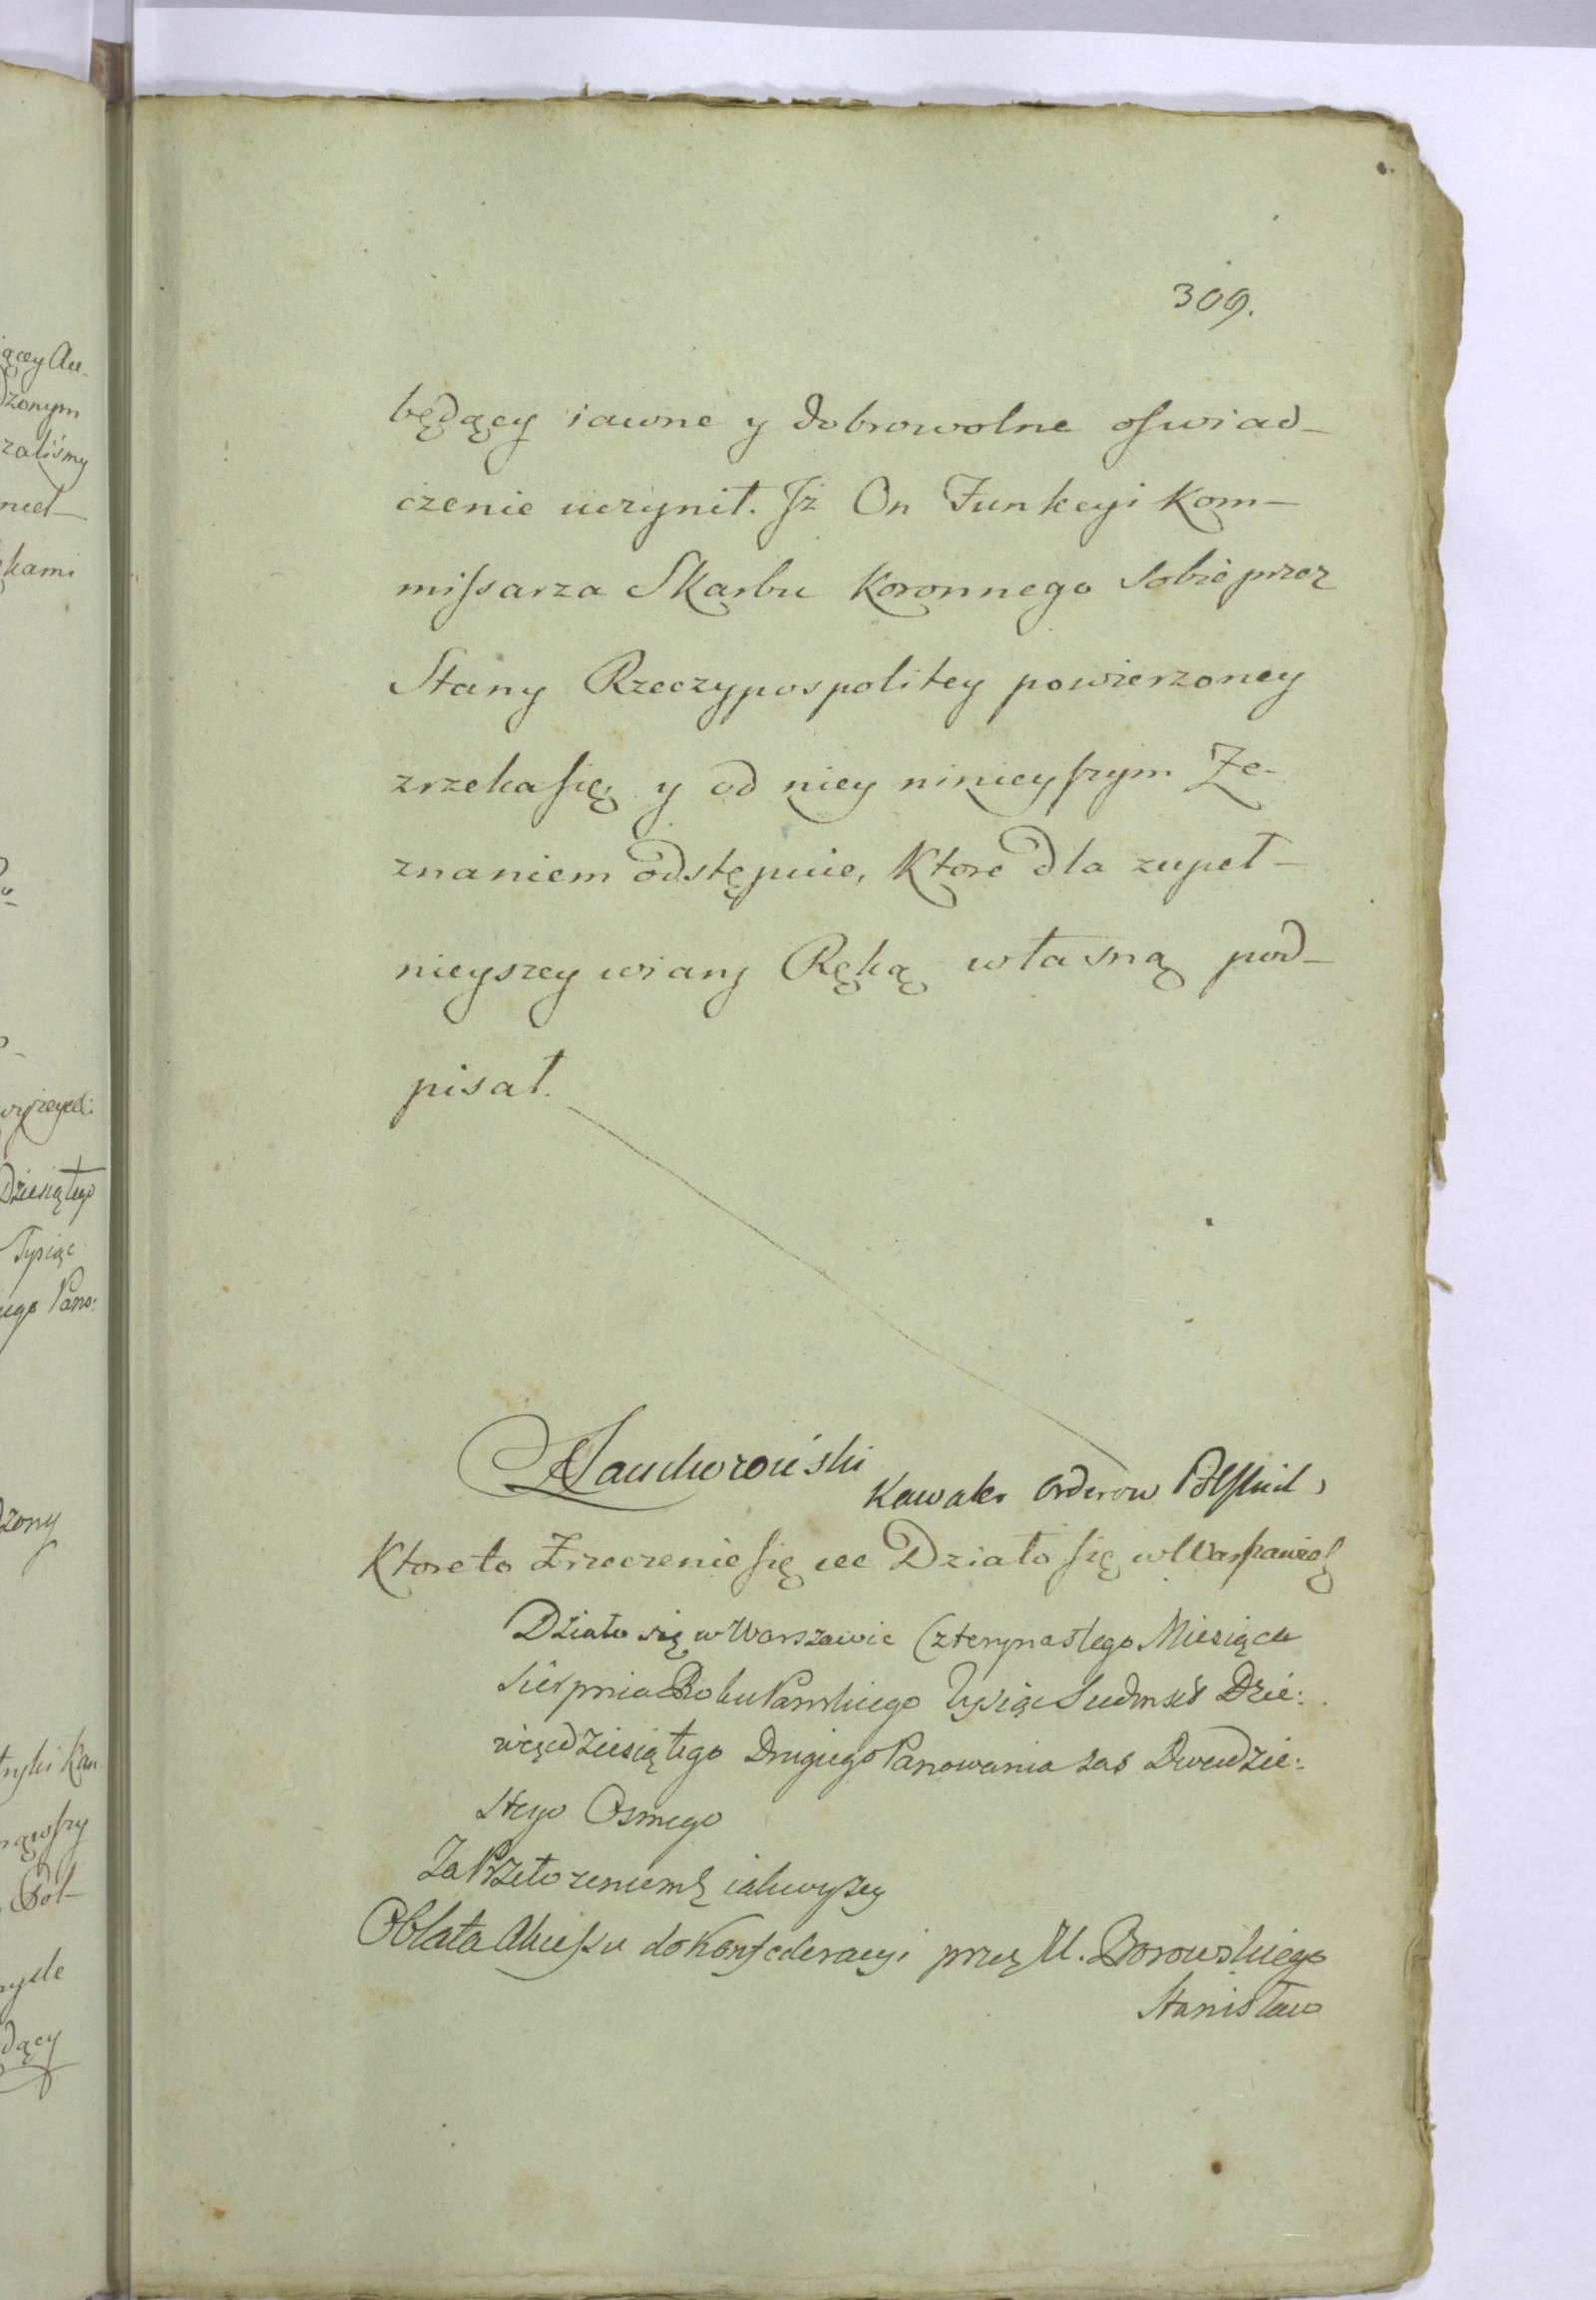 309.
będący iawne y dobrowolne oswiad-
czenie uczynił. Jż On Funkcyi Kom-
missarza Skarbu Koronnego Sobie przez
Stany Rzeczypospolitey powierzoney
zrzeka się, y od niey ninieyszym Ze-
znaniem odstępuie, Ktore dla zupeł-
nieyszey wiary Ręką własną pod-
pisał.
Kawaler Orderow
Ktore to Zrzeczenie się etc Działo się w Warszawie
Działo się w Warszawie Czternastego Miesiąca
Sierpnia Roku Panskiego Tysiąc Siedmset Dzie:
więcdziesiątego Drugiego Panowania zas Dwudzie:
stego Osmego
Za Przełozeniem iak wyzey
Oblata Akcessu do Konfederacyi przez U. Borowskiego
Stanisław
ącey Au-
dzonym
zaliśmy
kami
Dziesiątego
Tysiąc
iego Pano:
dzony
Pol-
dący